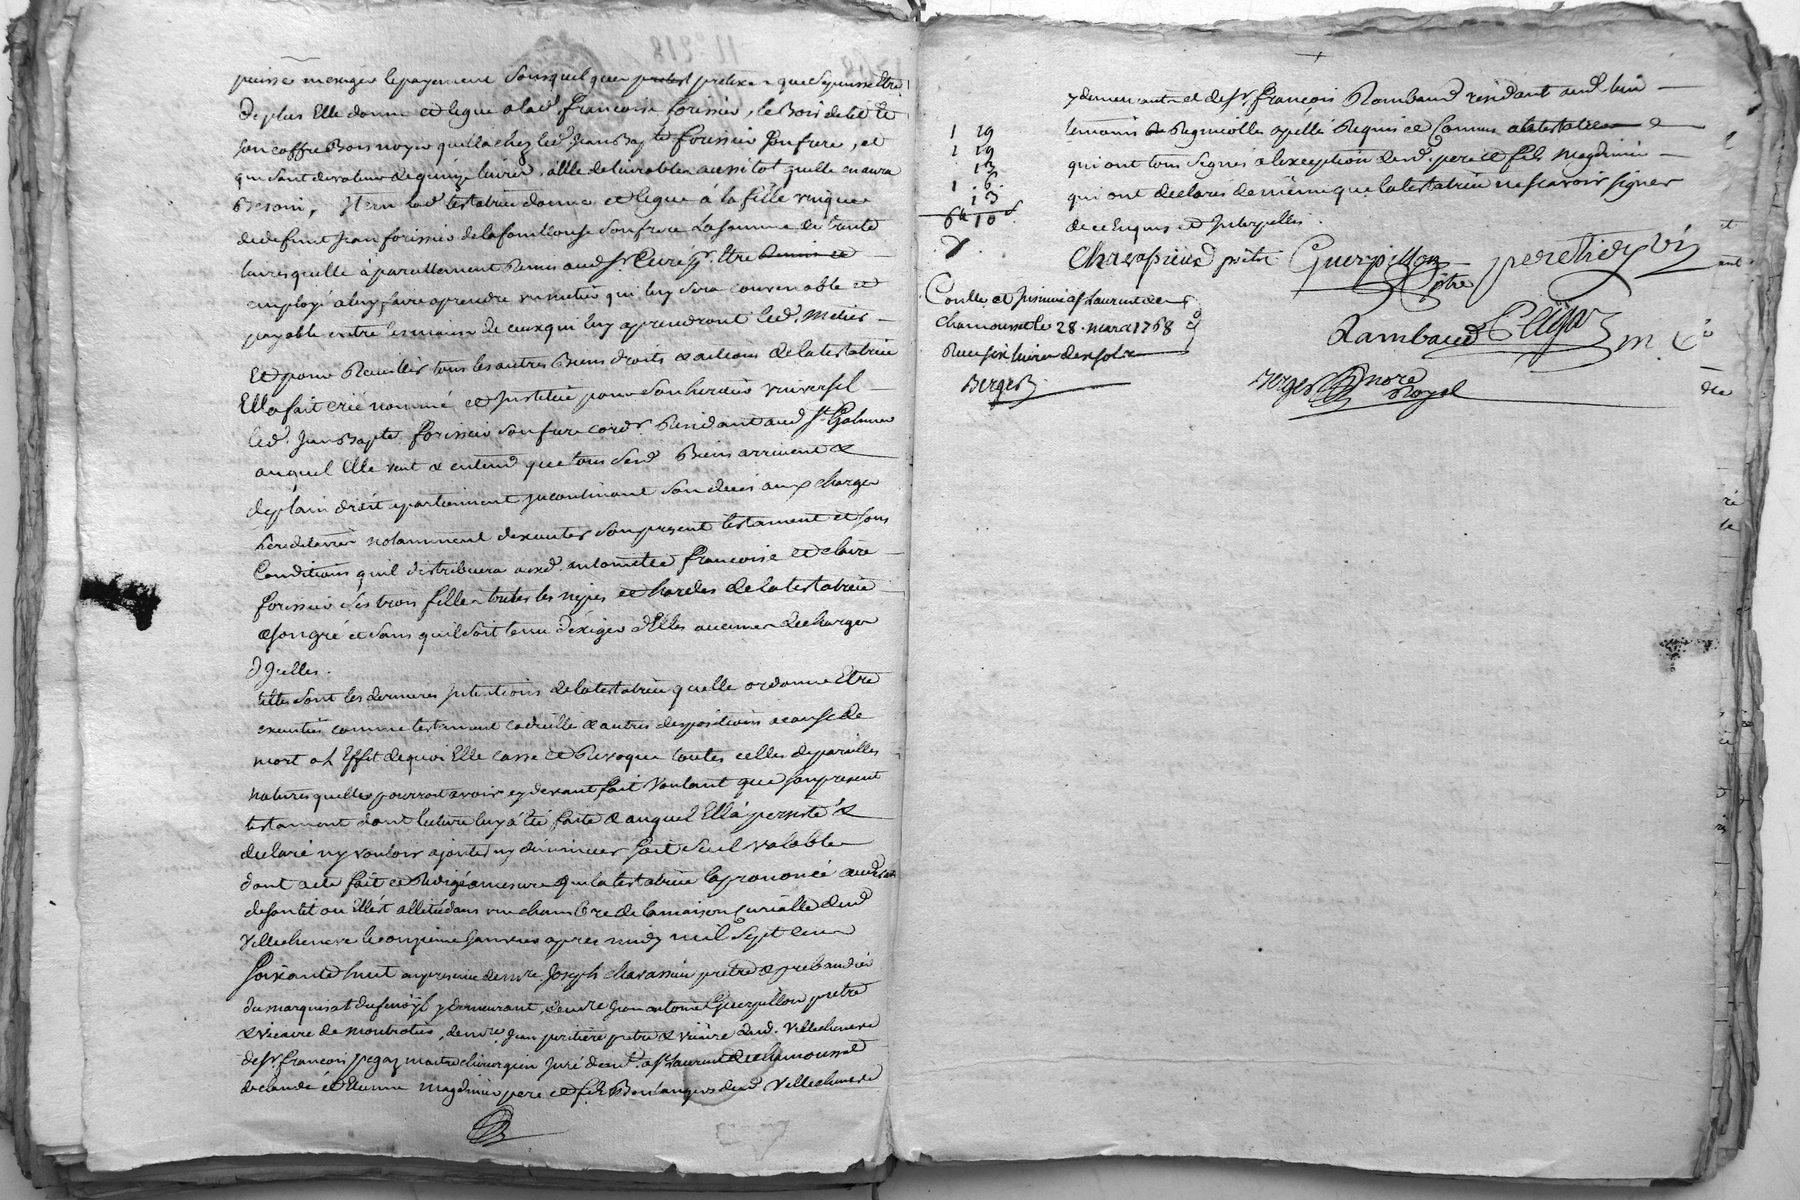 puisse en exiger le payement sous quel que pretexte que ce puisse Etre
De plus Elle donne et legue a lad. francoise forissier, le Bois de lit et
son coffre Bois noyer quelle a chez led. Jean Bapte forissier son frere, et
qui sont de valeur de quinze livres, a Elle delivrables aussitot quelle en aura
Besoin, Item lad. testatrice donne et legue à la fille unique
de defunt Jean forissier de la fouillouse son frere La somme de trente
livres quelle à pareillement Remis aud. Sr. Curé pr. Etre
employé a luy faire aprendre un metier qui luy sera convenable et
payable entre les mains de ceux qui luy aprendront led. Metier
Et pour Recuillir tous les autres Biens droits & actions de la testatrice
Elle a fait créé nommé et Institué pour son heritier universel
led. Jean Bapte. forissier son frere cordr. Residant aud. St. Galmier
auquel Elle veut & entend que tous sesd. Biens arrivent &
de plain droit apartiennent Incontinant son deces aux charges
hereditaires notamment dexecuter son present testament et sous
Conditions quil distribuera auxd. antoinette francoise et claire
forissier ses trois filles toutes les nipes et hardes de la testatrice
a son gré et sans quil soit tenu d'exiger d'Elles aucunes decharges
d'Icelles.
telles sont les dernieres Intentions de la testatrice quelle ordonne Etre
executées comme testament codicille & autres dispositions a cause de
mort a l Effet de quoi Elle casse et Revoque toutes celles de pareilles
natures quelles pourroit avoir cy devant fait Voulant que son present
testament dont lecture luy à été faite & auquel Ellà persisté &
declaré ny vouloir ajouter ny diminuer soit seul valable
dont acte fait et Redigé a mesure que la testatrice la prononcé
de son lit ou Ellest allitée dans une chambre de la maison curialle dud.
Villecheneve le onzieme Janvier apres midy mil Sept Cens
Soixante huit en presence de mre. Joseph chavassieu pretre & prebandier
du marquisat y demeurant, de mre Jean antoine Guerpillon pretre
& Vicaire de montrotier, de mre. Jean pretre & vicaire dud. Villecheneve
de Sr. francois maitre chirurgien Juré demt. a St Laurent de chamousset
de claude et Etienne Magdinier pere et fils Boulangers dud. Villecheneve
y demeurants et de Sr. françois Rambaud residant aud. lieu
temoins apellés Requis et Connus &
qui ont tous signés a lexception desd. pere et fils Magdinier
qui ont declarés de même que la testatrice ne scavoir signer
de ce Enquis et Interpellés.
1 19
1 19
13
1 . 6.
. 13
6# 10s
Chavassieux prêtre Guerpillon ptre
Rambaud
Conllé et Insinué a St Laurent de
chamousset le 28. mars 1768
Reçu six livres dix sols
Berger
Berger Nore Royal